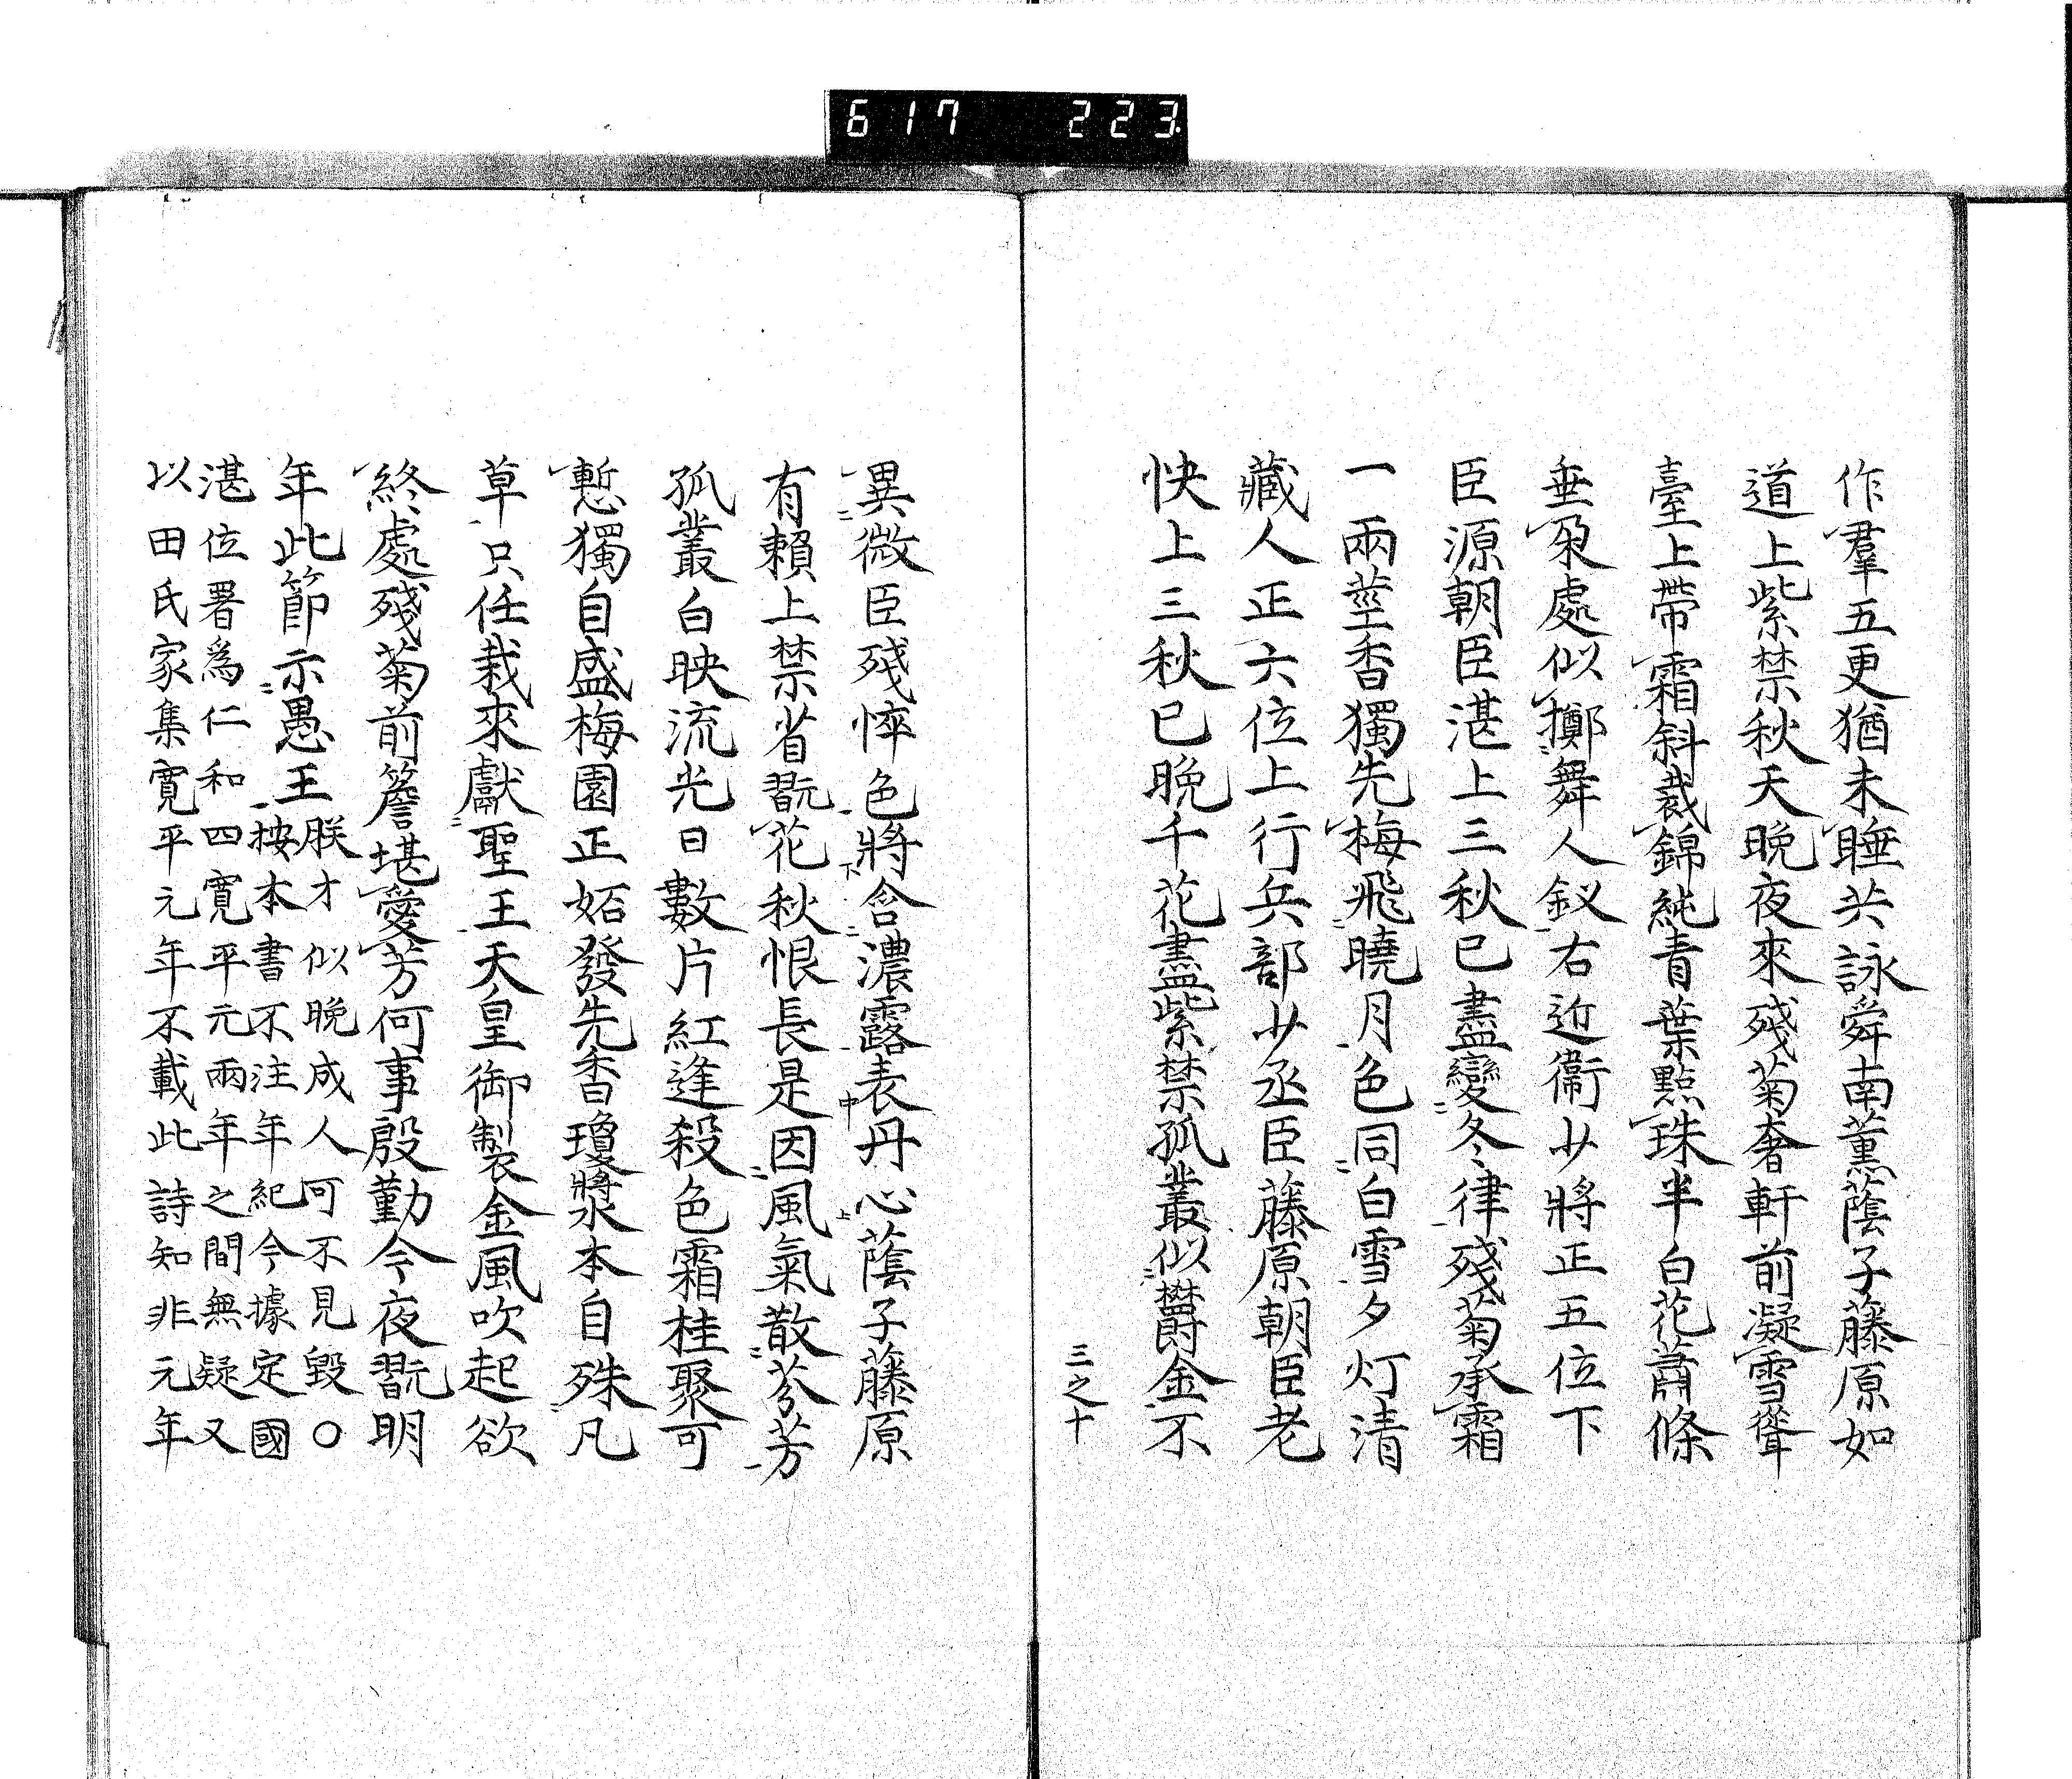 617 223
作羣五更猶未睡共詠舜南薫蔭子藤原如
道上紫禁秋天晩夜來殘菊奢軒前凝雪聳
臺上帶霜斜裁錦純青葉點珠半白花蕭條
垂朶處似擲舞人釵右近衞少將正五位下
臣源朝臣湛上三秋已盡變冬律殘菊承霜
一兩莖香獨先梅飛曉月色同白雪夕灯清
藏人正六位上行兵部少丞臣藤原朝臣老
快上三秋已晩千花盡紫禁孤叢似欝金不
三之十
異微臣殘悴色將含濃露表丹心蔭子藤原
有賴上禁省翫花秋恨長是因風氣散芬芳
孤叢白映流光日數片紅逢殺色霜桂聚可
慙獨自盛梅園正妬發先香瓊漿本自殊凡
草只任栽來獻聖王天皇御製金風吹起欲
終處殘菊前簷堪愛芳何事殷勤今夜翫明
年此節示愚王朕才似晩成人可不見毀〇
按本書不注年紀今據定國
湛位署爲仁和四寛平元兩年之間無疑又
以田氏家集寛平元年不載此詩知非元年